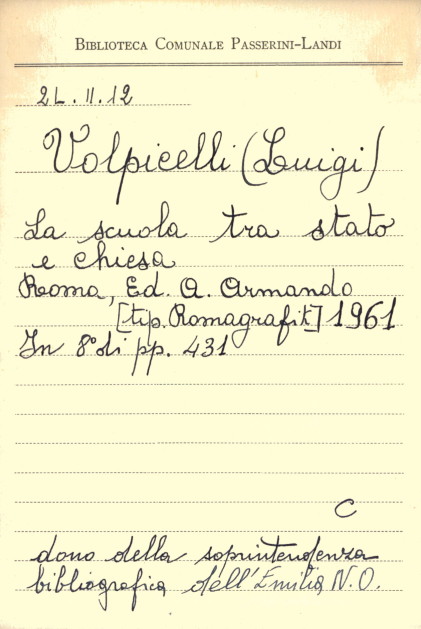 BIBLIOTECA COMUNALE PASSERINI-LANDI
2L.II.12
Volpicelli (Luigi)
La scuola tra stato
e chiesa
Roma, Ed. A. Armando
[tip. Romagrafik] 1961
In 8° di pp. 431
C
dono della soprintendenza
bibliografica dell'Emilia N.O.